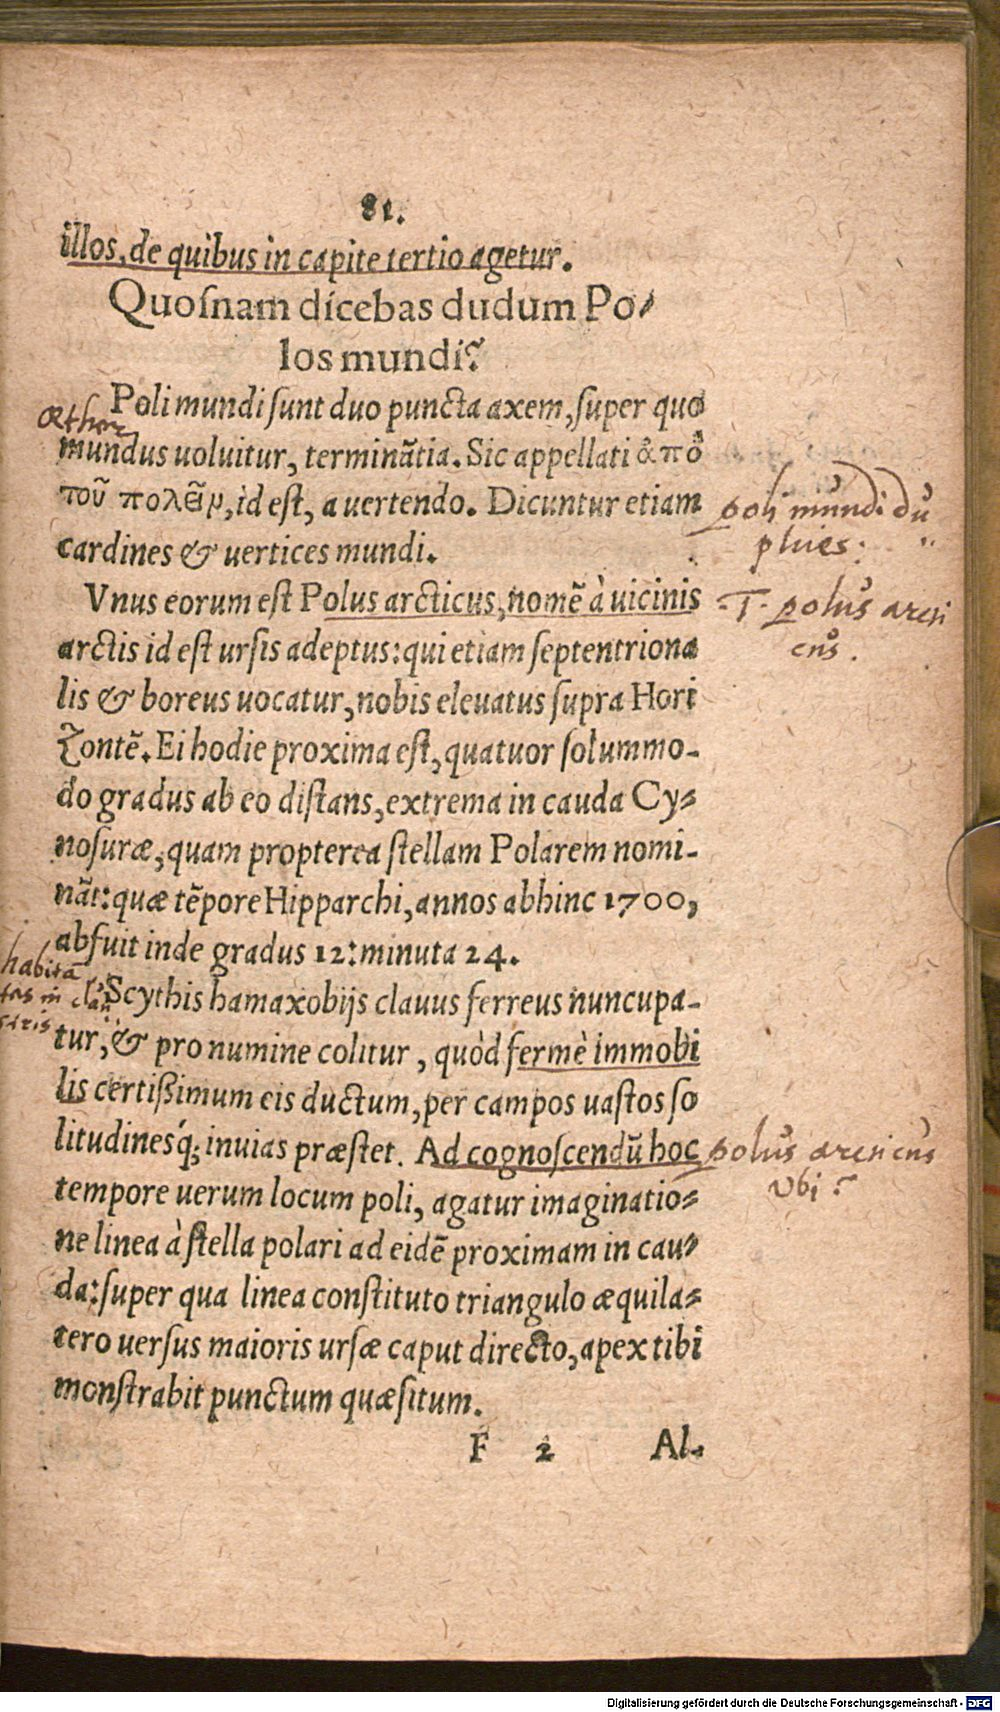 81.
illos, de quibus in capite tertio agetur.
Quoſnam dicebas dudum Po-
los mundi?
Poli mundi ſunt duo puncta axem, ſuper quo
mundus uoluitur, terminãtia. Sic appellati ἀπὸ
τοῦ πολεῖν, id eſt, a uertendo. Dicuntur etiam
cardines & uertices mundi.
Vnus eorum eſt Polus arcticus, nomẽ à uicinis
arctis id eſt urſis adeptus: qui etiam ſeptentriona
lis & boreus uocatur, nobis eleuatus ſupra Hori
zontẽ. Ei hodie proxima eſt, quatuor ſolummo-
do gradus ab eo diſtans, extrema in cauda Cy-
noſuræ, quam propterea ſtellam Polarem nomi-
nãt: quæ tẽpore Hipparchi, annos abhinc 1700,
abfuit inde gradus 12: minuta 24.
Scythis hamaxobijs clauus ferreus nuncupa-
tur, & pro numine colitur, quòd fermè immobi
lis certißimum eis ductum, per campos uaſtos ſo
litudinesq́; inuias præſtet. Ad cognoſcendũ hoc
tempore uerum locum poli, agatur imaginatio-
ne linea à ſtella polari ad eidẽ proximam in cau-
da: ſuper qua linea conſtituto triangulo æquila-
tero uerſus maioris urſæ caput directo, apex tibi
monſtrabit punctum quæſitum.
F 2 Al-
poli mundi du
plices:
1. polus arcti
cus.
habita
polus arcticus
ubi?
Digitalisierung gefördert durch die Deutsche Forschungsgemeinschaft - DFG